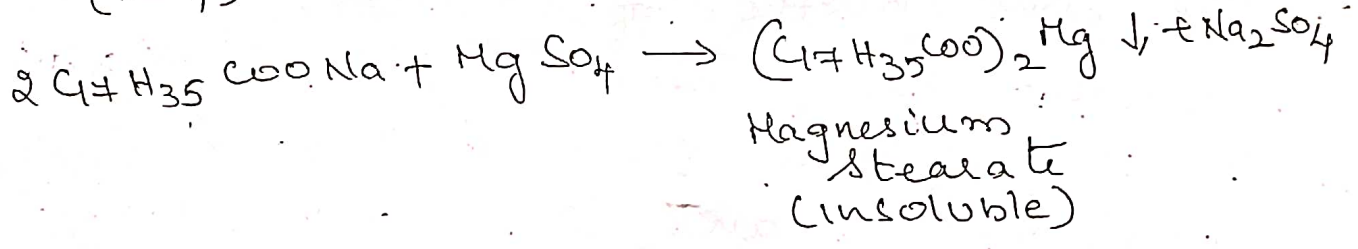 2 C17 H35 COO Na + Mg SO4 → (C17 H35 COO)2 Mg ↓ + Na2 SO4
Magnesium
stearate
(insoluble)